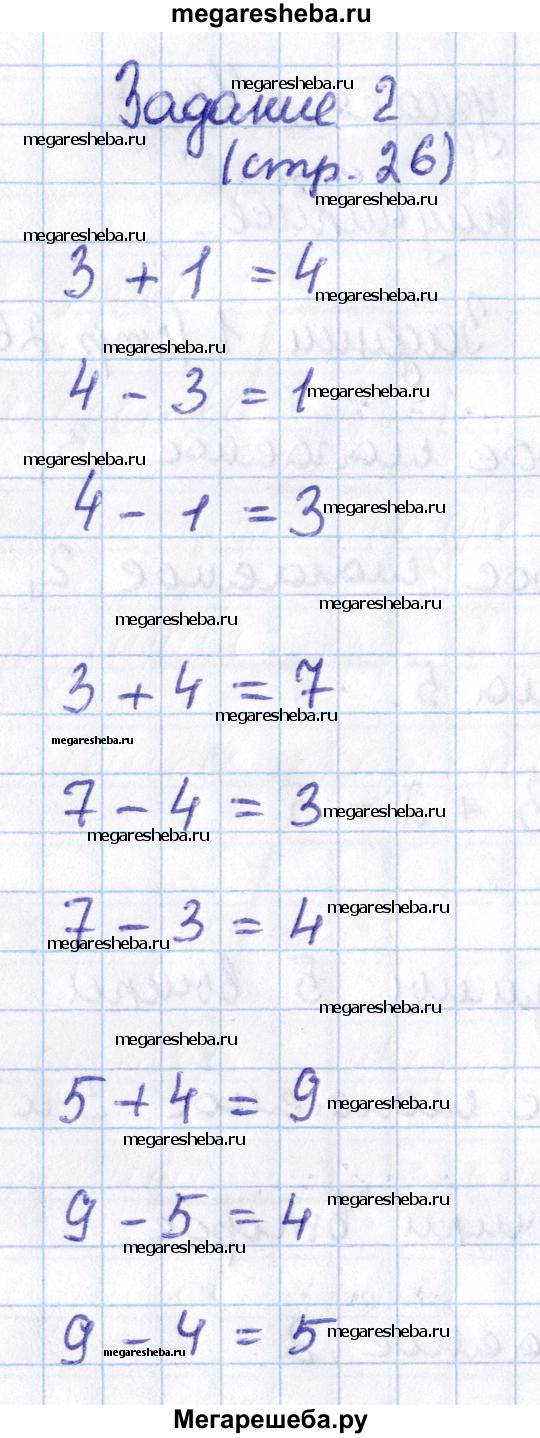 megaresheba.ru
megaresheba.ru
Задание 2
megaresheba.ru
(стр. 26)
megaresheba.ru
megaresheba.ru
3 + 1 = 4
megaresheba.ru
megaresheba.ru
4 - 3 = 1
megaresheba.ru
megaresheba.ru
4 - 1 = 3
megaresheba.ru
megaresheba.ru
megaresheba.ru
3 + 4 = 7
megaresheba.ru
megaresheba.ru
7 - 4 = 3
megaresheba.ru
megaresheba.ru
7 - 3 = 4
megaresheba.ru
megaresheba.ru
megaresheba.ru
megaresheba.ru
5 + 4 = 9
megaresheba.ru
megaresheba.ru
9 - 5 = 4
megaresheba.ru
megaresheba.ru
9 - 4 = 5
megaresheba.ru
megaresheba.ru
Мегарешеба.ру